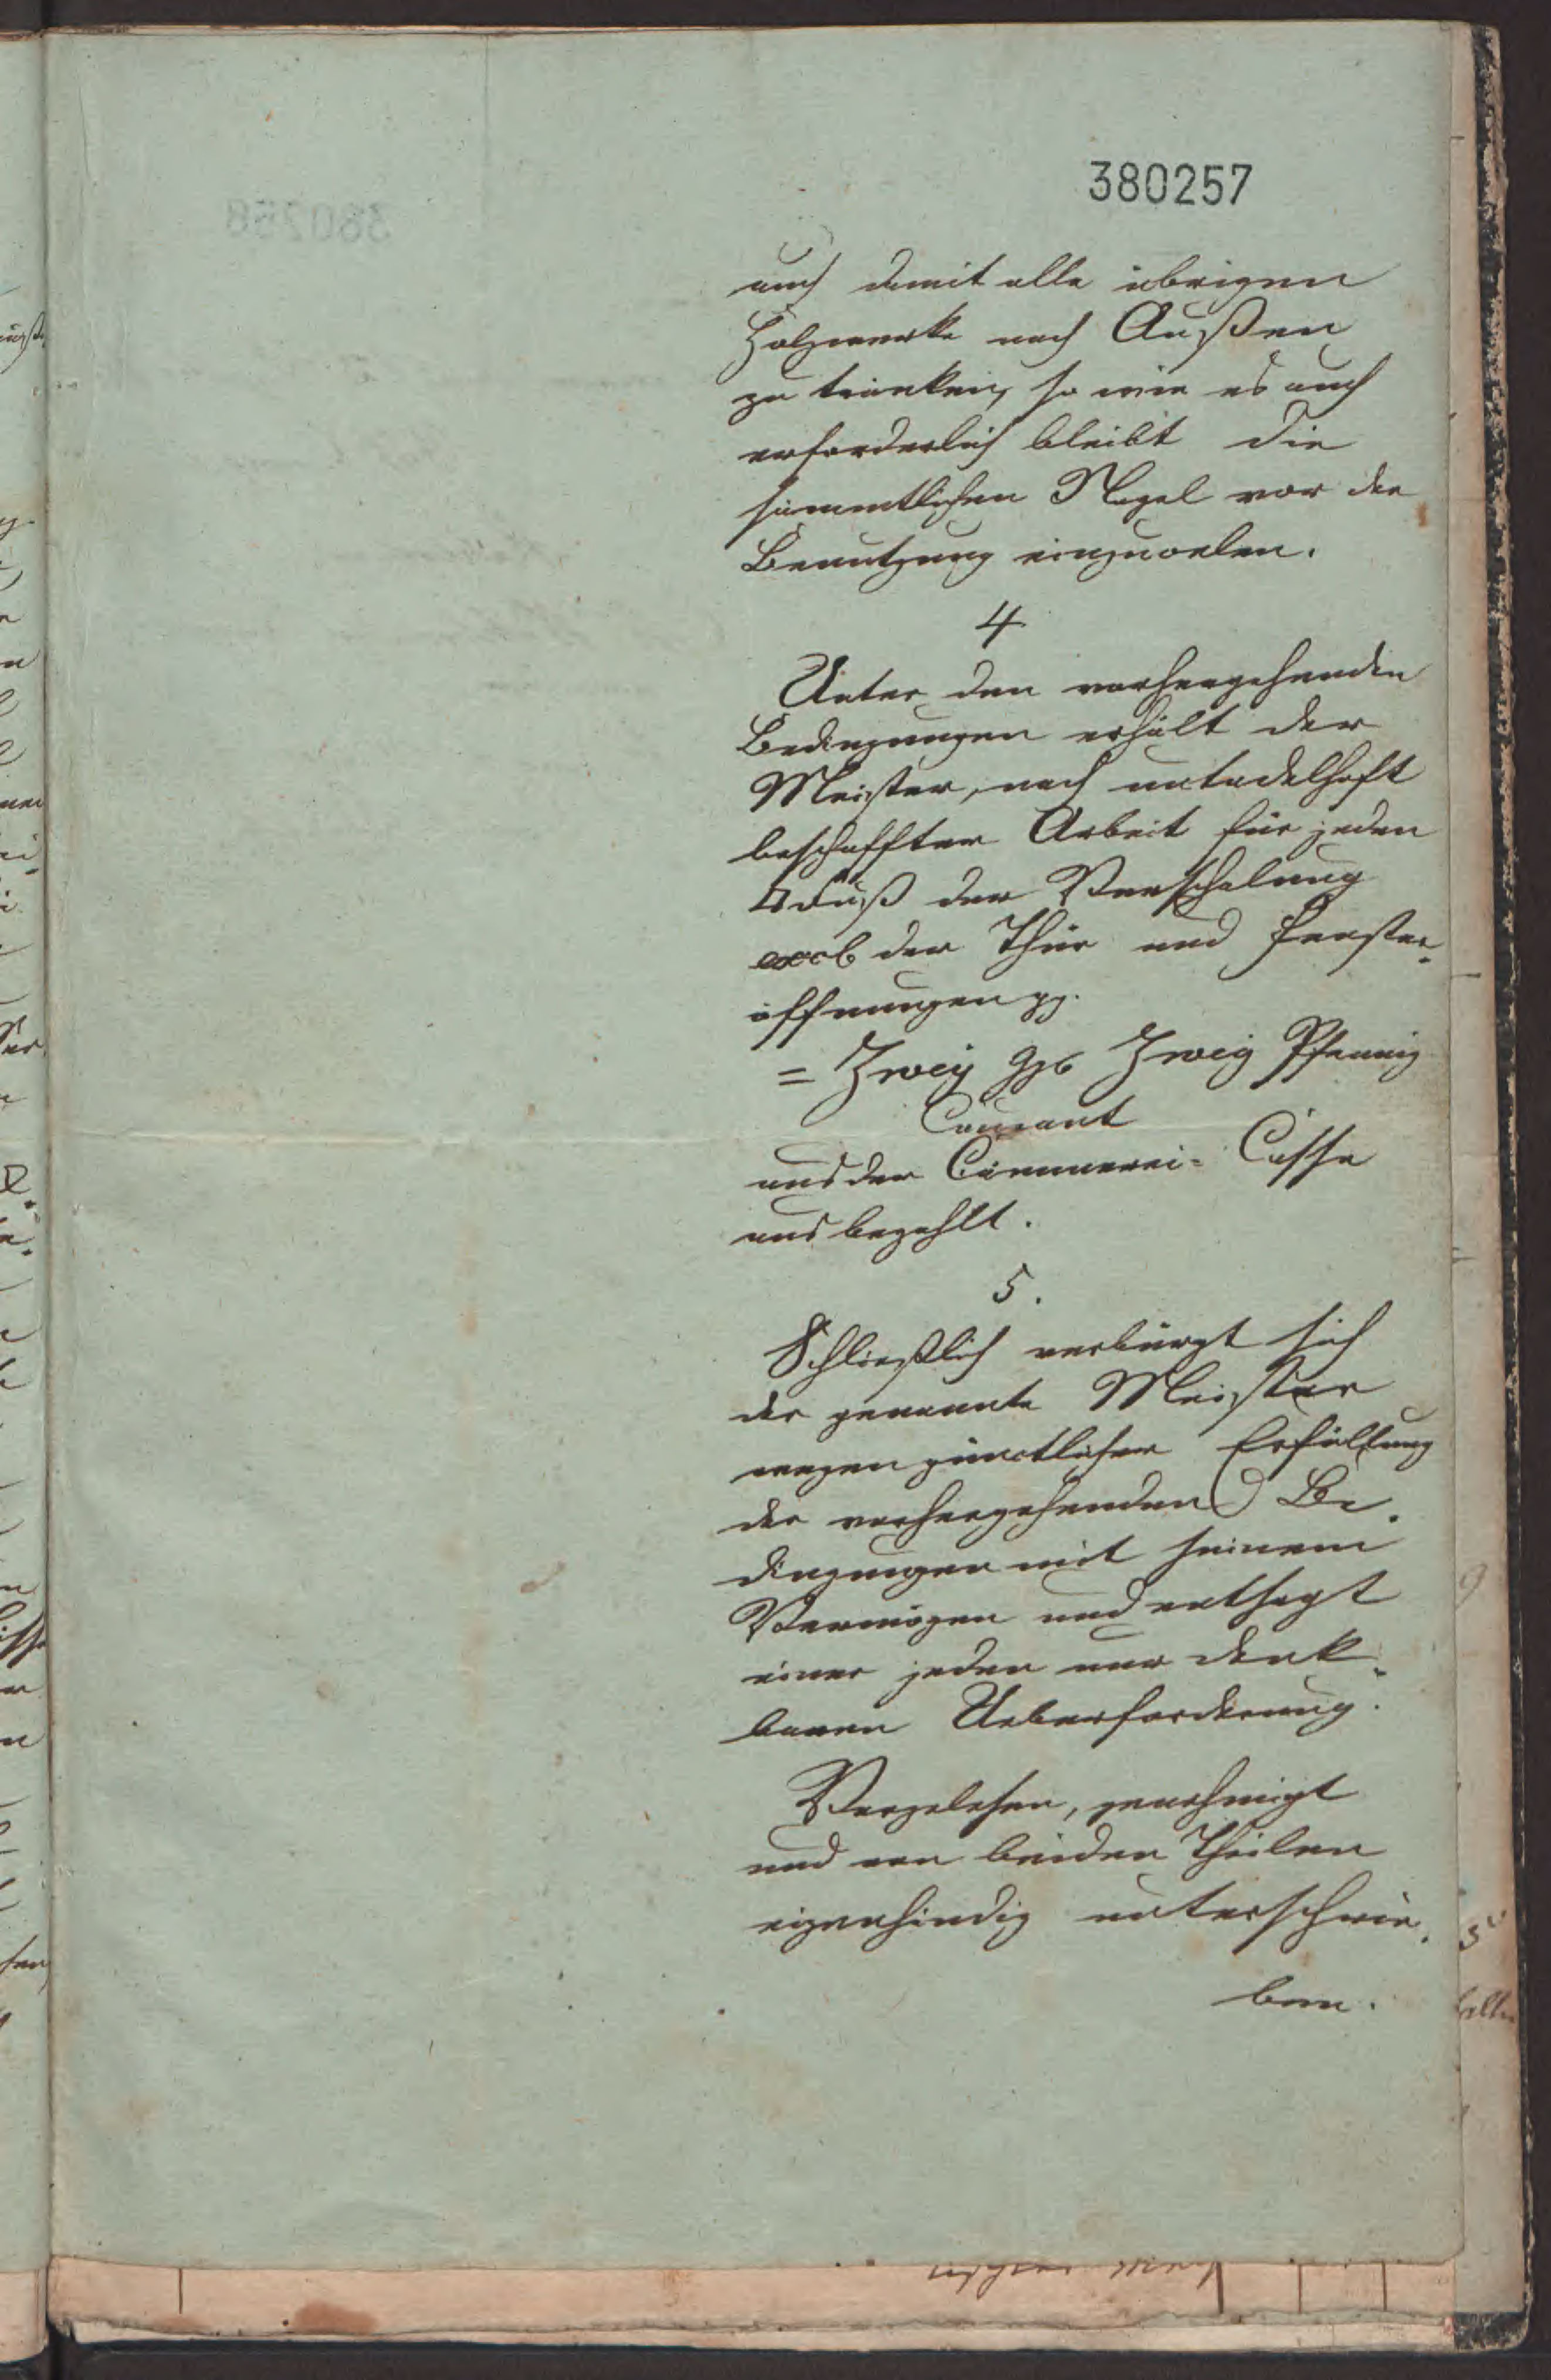 380257
auch damit alle übrigen
Holzwerke nach Außen
zu tränken, so wie es auch
erforderlich bleibt die
sämmtlichen Nägel vor der
Benutzung einzuoelen.
4.
Unter den vorhergehenden
Bedingungen erhält der
Meister, nach untadelhaft
beschaffter Arbeit für jeden
□Fuß der Verschalung
excl der Thür und Fenster-
öffnungen pp.
= Zwey Ggr Zwey Pfennig
Courant
aus der Cämmerei-Casse
ausbezahlt.
5.
Schließlich verbürgt sich
der genannte Meister
wegen pünctlicher Erfüllung
der vorhergehenden Be-
dingungen mit seinem
Vermögen und entsagt
einer jeden nur denk-
baren Ueberforderung.
Vorgelesen, genehmigt
und von beiden Theilen
eigenhändig unterschrie-
ben.